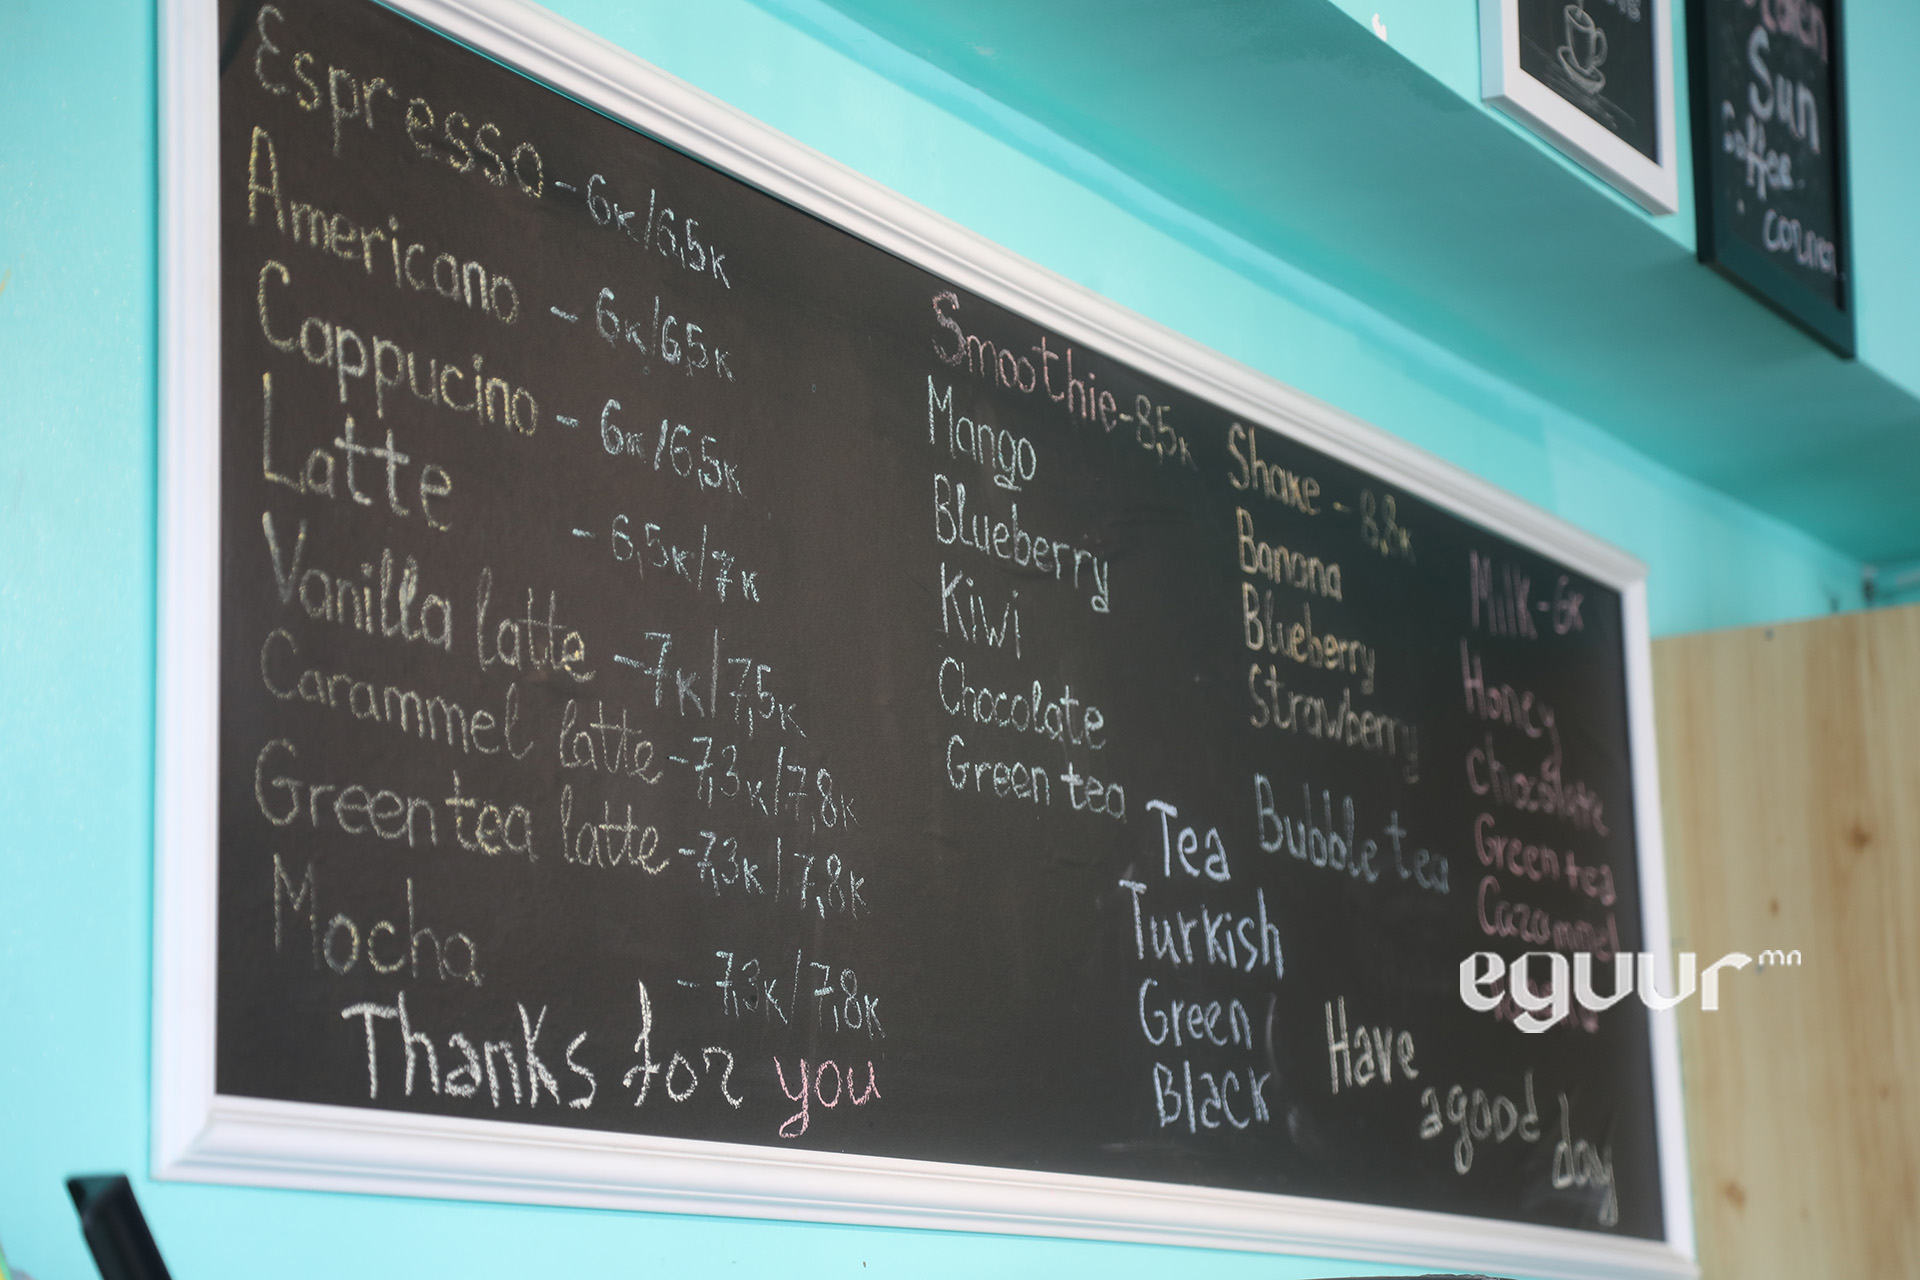 Espresso - 6к/6,5к
Americano - 6к/6,5к
Cappucino - 6к/6,5к
Latte - 6,5к/7к
Vanilla latte - 7к/7,5к
Carammel latte - 7,3к/7,8к
Green tea latte - 7,3к/7,8к
Mocha - 7,3к/7,8к
Thanks for you
Smoothie - 8,5к
Mango
Blueberry
Kiwi
Chocolate
Green tea
Shake - 8,8к
Banana
Blueberry
Strawberry
Bubble tea
Tea
Turkish
Green
Black
Milk - 6к
Honey
Chocolate
Green tea
Carammel
Have
a good
day
Sun
Coffee
corner
eguur.mn